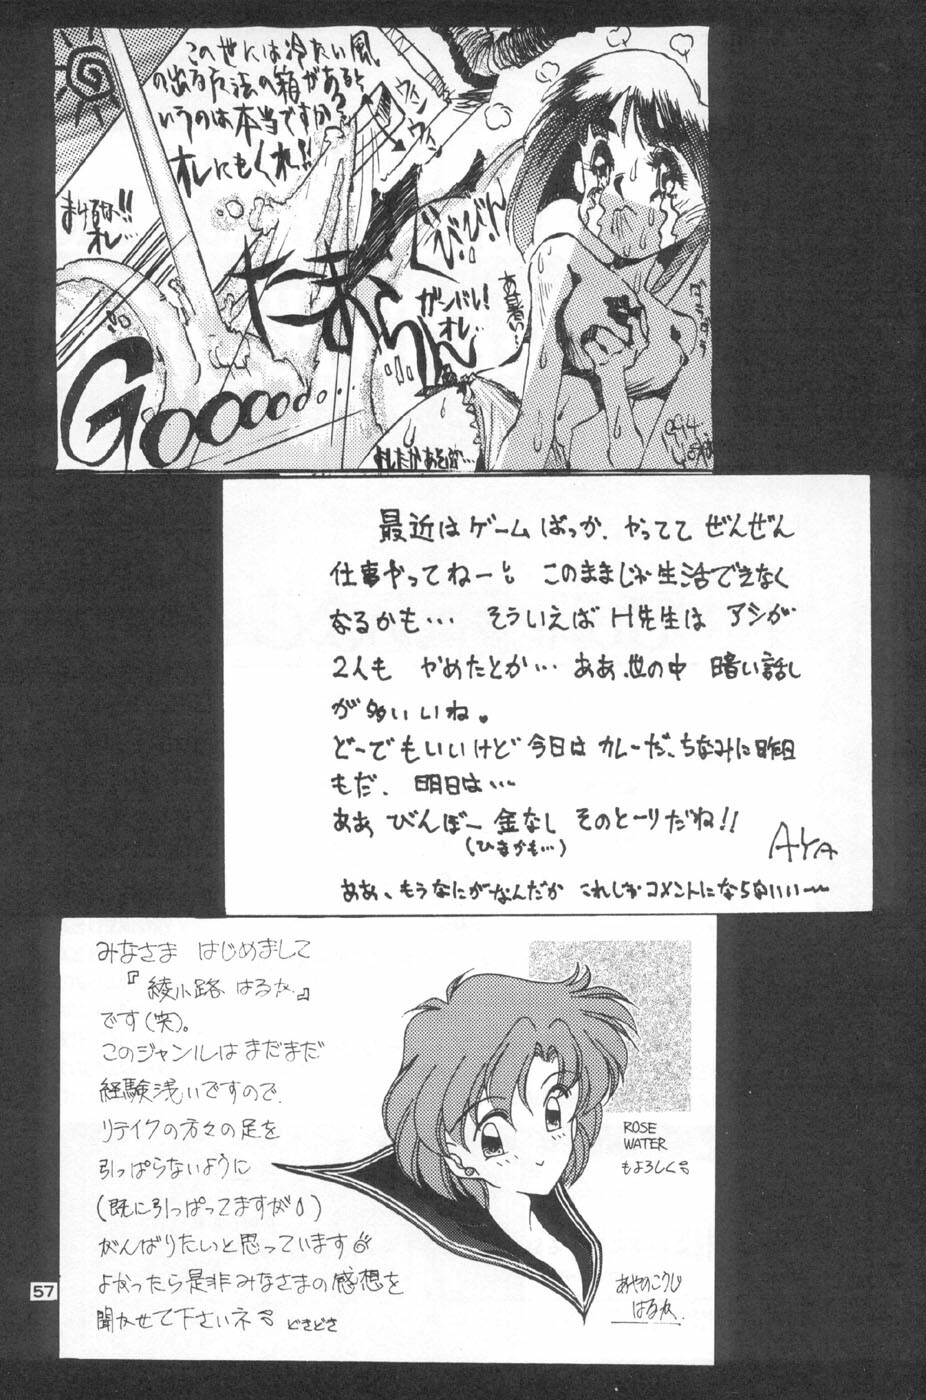 この世には冷たい風
の出る方法の箱があると
いうのは本当ですか?
オレにもくれ!!
ウィン
ウィィ
まけるな!!
オレ…
びびびん
ガンバレ!
オレ…
あ暑い…
たまらん
Gooooo…
'94
最近はゲームばっか、やってて ぜんぜん
仕事やってねーと このままじゃ生活できなく
なるかも… そういえば H先生は アシが
2人も やめたとか… ああ、世の中 暗い話し
が多いいね。
どーでもいいけど今日は カレーだ、ちなみに昨日
もだ、 明日は…
ああ びんぼー 金なし そのとーりだね!!
(ひまかも…)
AYA
ああ、もうなにがなんだか これじゃコメントにならないい〜
みなさま はじめまして
『綾小路 はるか』
です(笑)。
このジャンルは まだまだ
経験浅いですので、
リテイクの方々の足を
引っぱらないように
(既に引っぱってますが)
がんばりたいと思っています
よかったら是非みなさまの感想を
聞かせて下さいネ どきどき
ROSE
WATER
もよろしく
あやのこうじ
はるか.
57